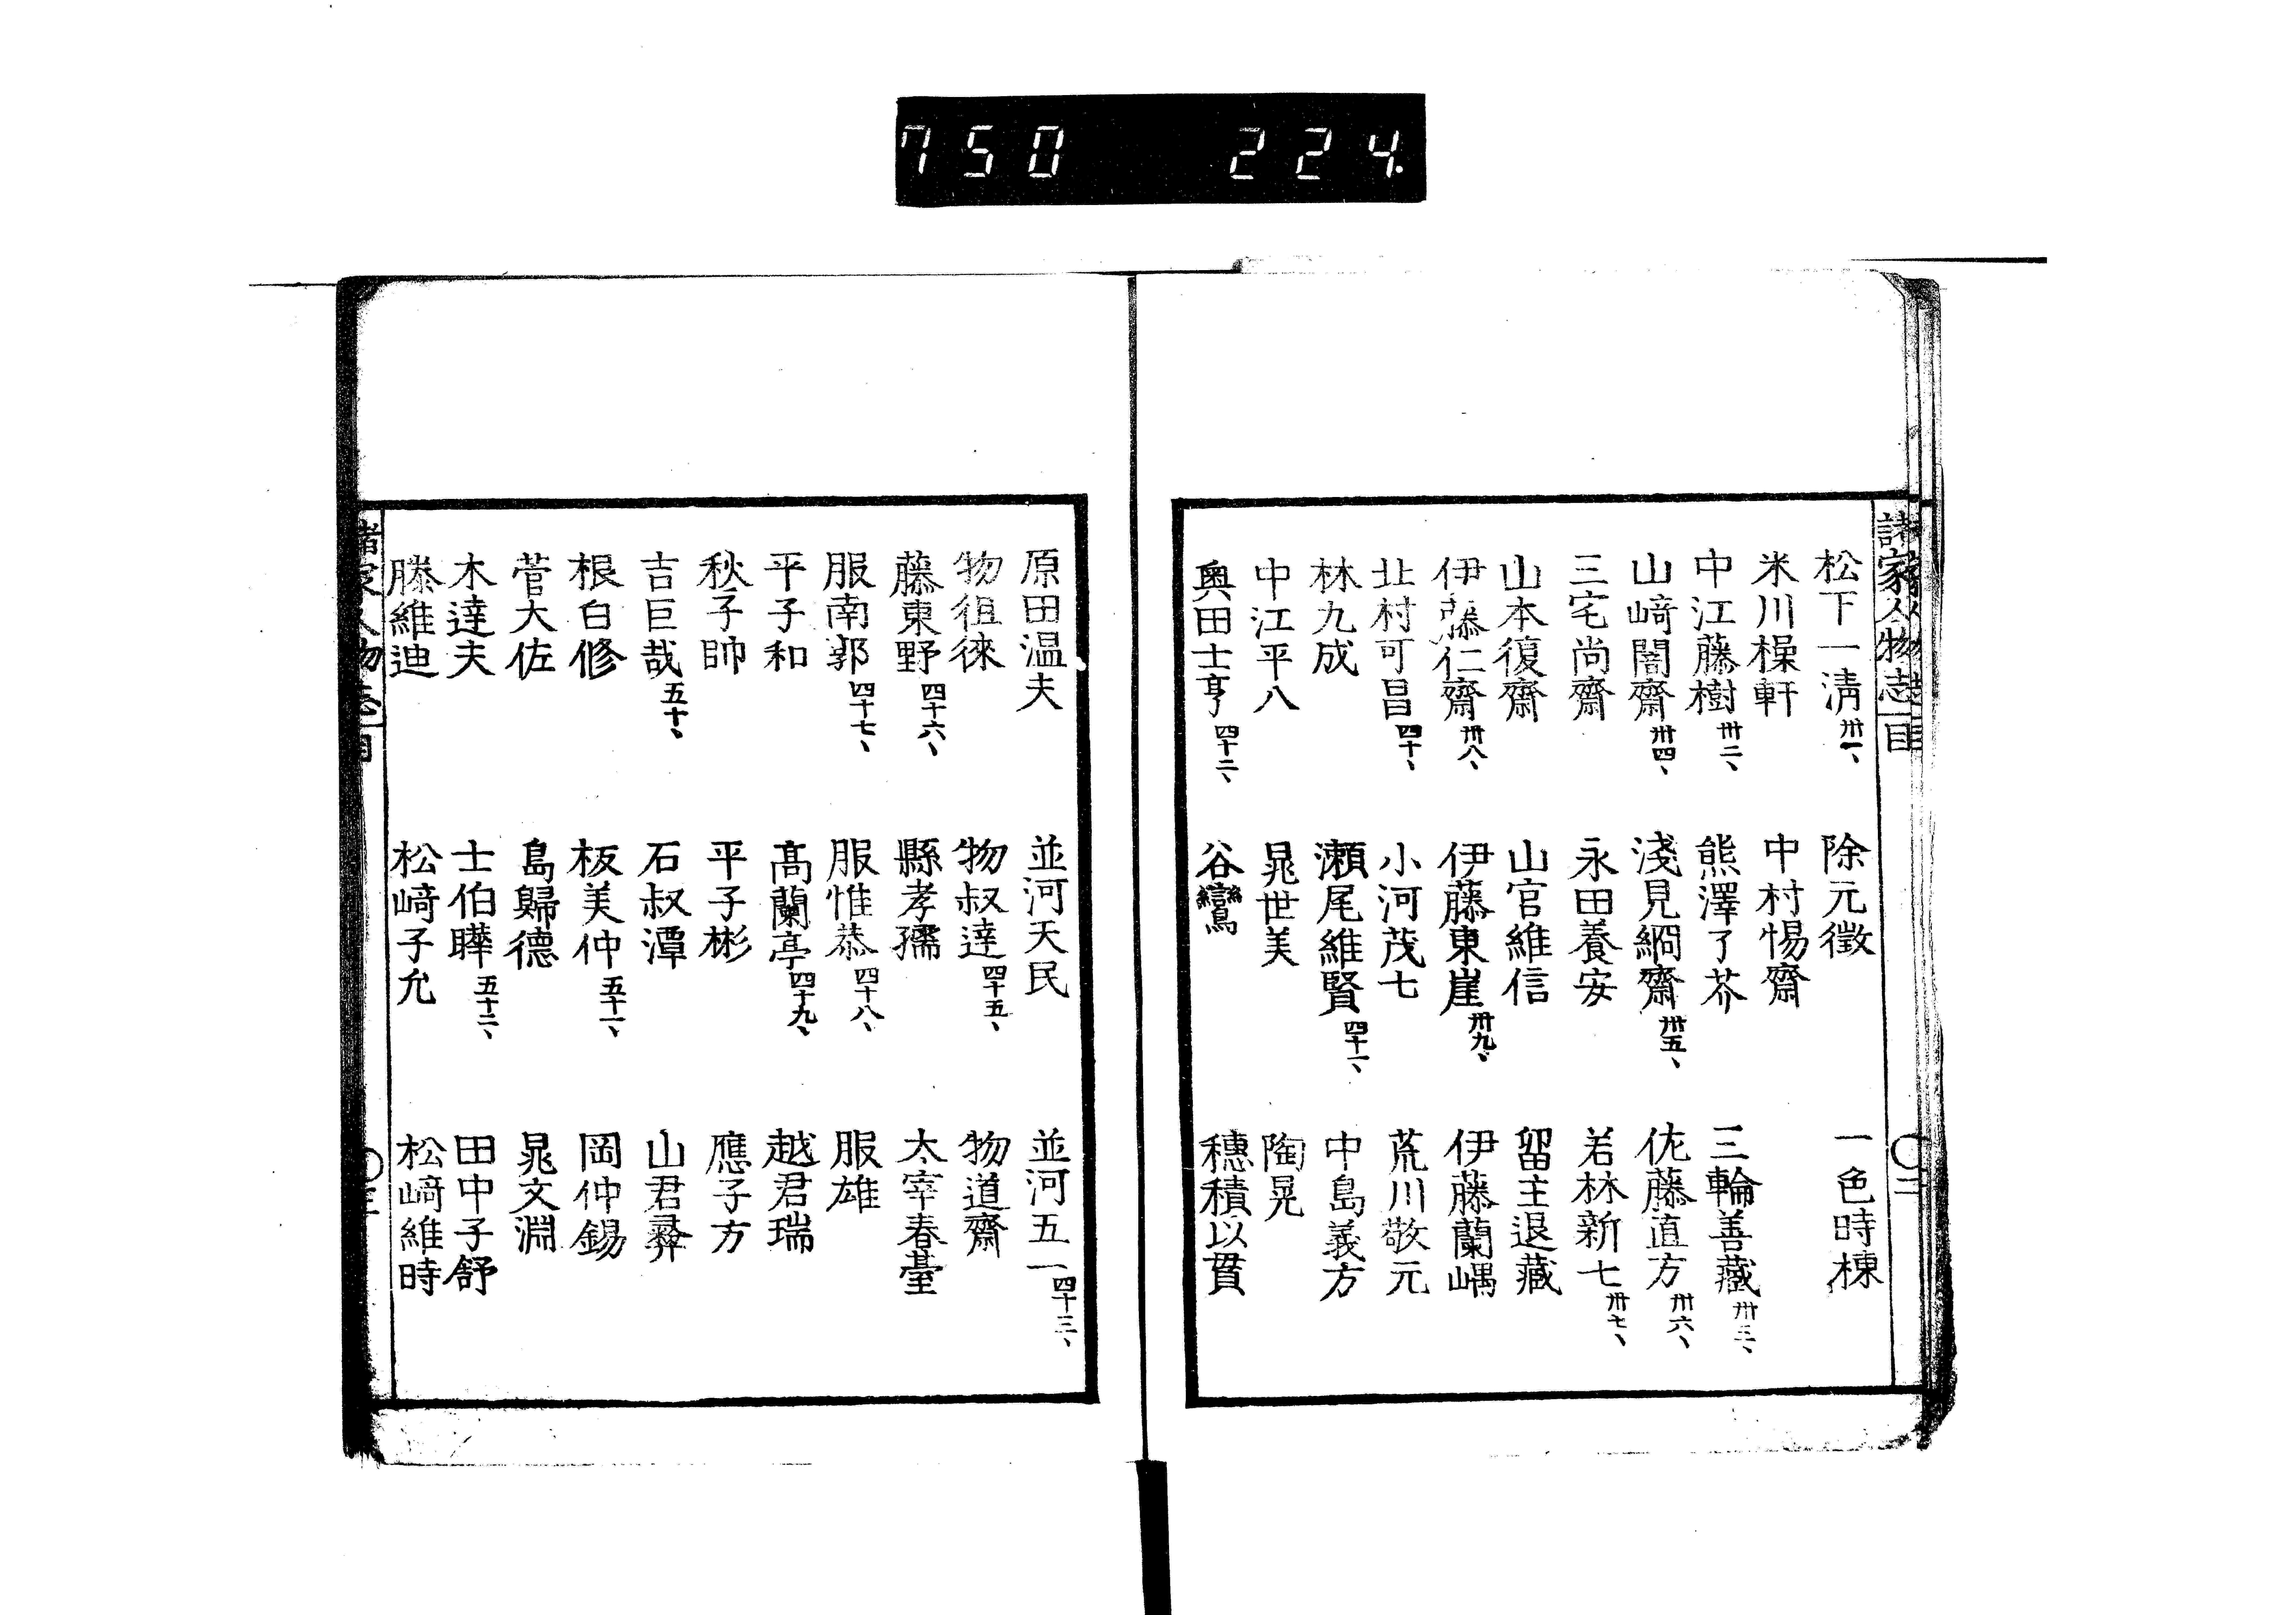 750 224.
諸家人物志 目 〇二
松下一清 卅一、 除元徵 一色時棟
米川樔軒 中村惕齋
中江藤樹 卅二、 熊澤了芥 三輪善藏 卅三、
山﨑闇齋 卅四、 淺見絅齋 卅五、 佐藤直方 卅六、
三宅尚齋 永田養安 若林新七 卅七、
山本復齋 山宮維信 留主退藏
伊藤仁齋 卅八、 伊藤東崖 卅九、 伊藤蘭嵎
北村可昌 四十、 小河茂七 荒川敬元
林九成 瀨尾維賢 四十一、 中島義方
中江平八 晁世美 陶晃
奥田士亨 四十二、 谷鸞 穗積以貫
原田温夫 並河天民 並河五一 四十三、
物徂徠 物叔達 四十五、 物道齋
藤東野 四十六、 縣孝孺 太宰春臺
服南郭 四十七、 服惟恭 四十八、 服雄
平子和 髙蘭亭 四十九、 越君瑞
秋子帥 平子彬 應子方
吉臣哉 五十、 石叔潭 山君彝
根白修 板美仲 五十一、 岡仲錫
菅大佐 島歸德 晁文淵
木達夫 士伯曄 五十二、 田中子舒
滕維迪 松﨑子允 松﨑維時
諸家人物志 目